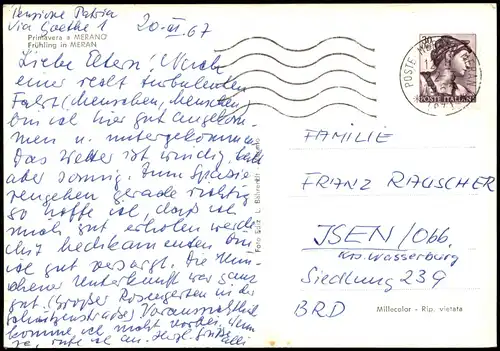 Pensione Patria
Via Goethe 1
20.III.67
Primavera a MERANO
Frühling in MERAN
Liebe Eltern! Nach
einer recht turbulenten
Fahrt (Menschen, Menschen)
bin ich hier gut angekom-
men u. untergekommen.
Das Wetter ist windig, kalt
aber sonnig. Zum Spazie-
rengehen gerade richtig
so hoffe ich, daß ich
mich gut erholen werde.
Mit Medikamenten bin
ich gut versorgt. Die Mün-
chener Unterkunft war ganz
gut. (Großer Rosengarten in der
straße) Voraussichtlich
komme ich nicht vorbei, wenn
ja, rufe ich an. Herzl. Grüße
Foto Ediz. L.
POSTE
POSTE ITALIANE
FAMILIE
FRANZ RAUSCHER
ISEN/Obb.
Krs. Wasserburg
Siedlung 239
BRD
Millecolor - Rip. vietata